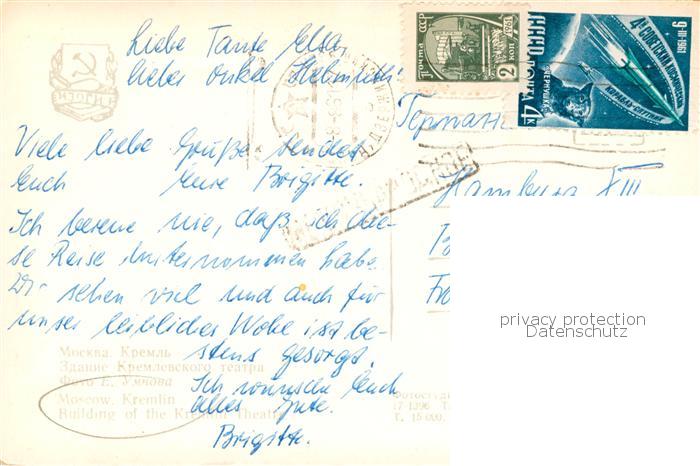 Liebe Tante Elsa,
lieber Onkel
Viele liebe Grüße sendet
Euch Eure Brigitte.
Ich bereue nie, daß ich die-
se Reise unternommen habe.
Wir sehen viel und auch für
unser leibliches Wohl ist be-
stens gesorgt.
Ich wünsche Euch
alles Gute.
Brigitte.
Москва. Кремль
Здание Кремлевского театра
Фото Е. Умнова
Moscow. Kremlin
Building of the Kremlin Theatre
ПОЧТА СССР
1961
2 КОП
9-III-1961
4й СОВЕТСКИЙ КОСМИЧЕСКИЙ
КОРАБЛЬ-СПУТНИК
ЧЕРНУШКА
СССР ПОЧТА
4К
Германия
Hamburg XIII
privacy protection
Datenschutz
17-1396
Т. 15 000.